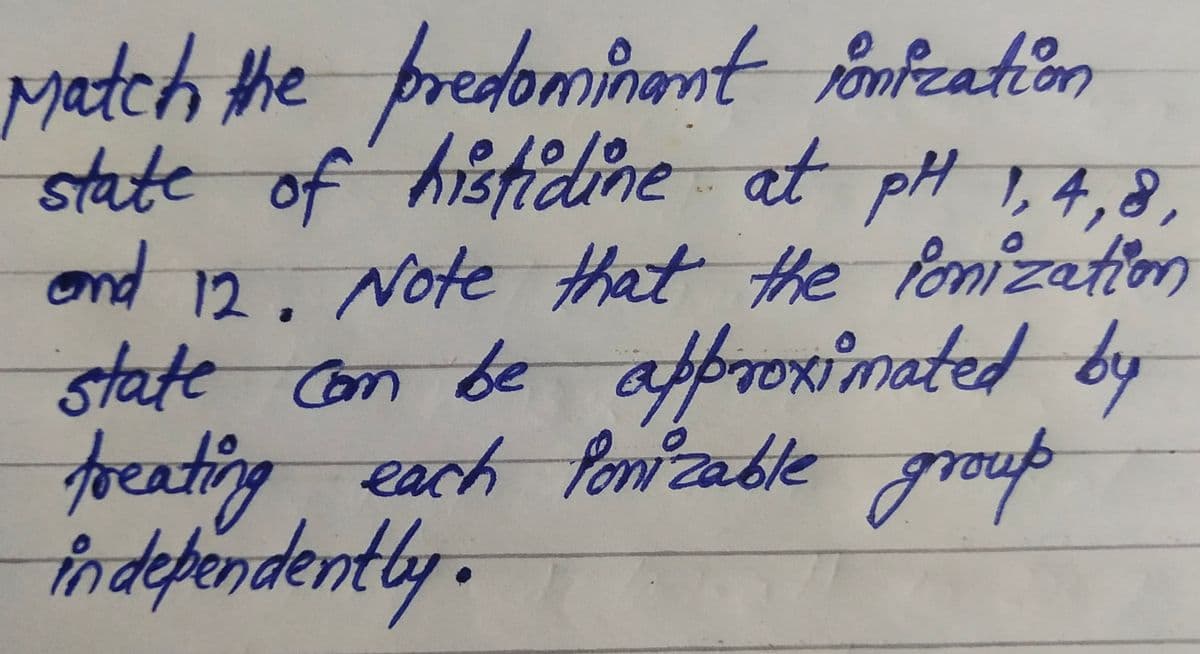 Match the predominant ionization
state of histidine at pH 1, 4, 8,
and 12. Note that the ionization
state can be approximated by
treating each ionizable group
independently.